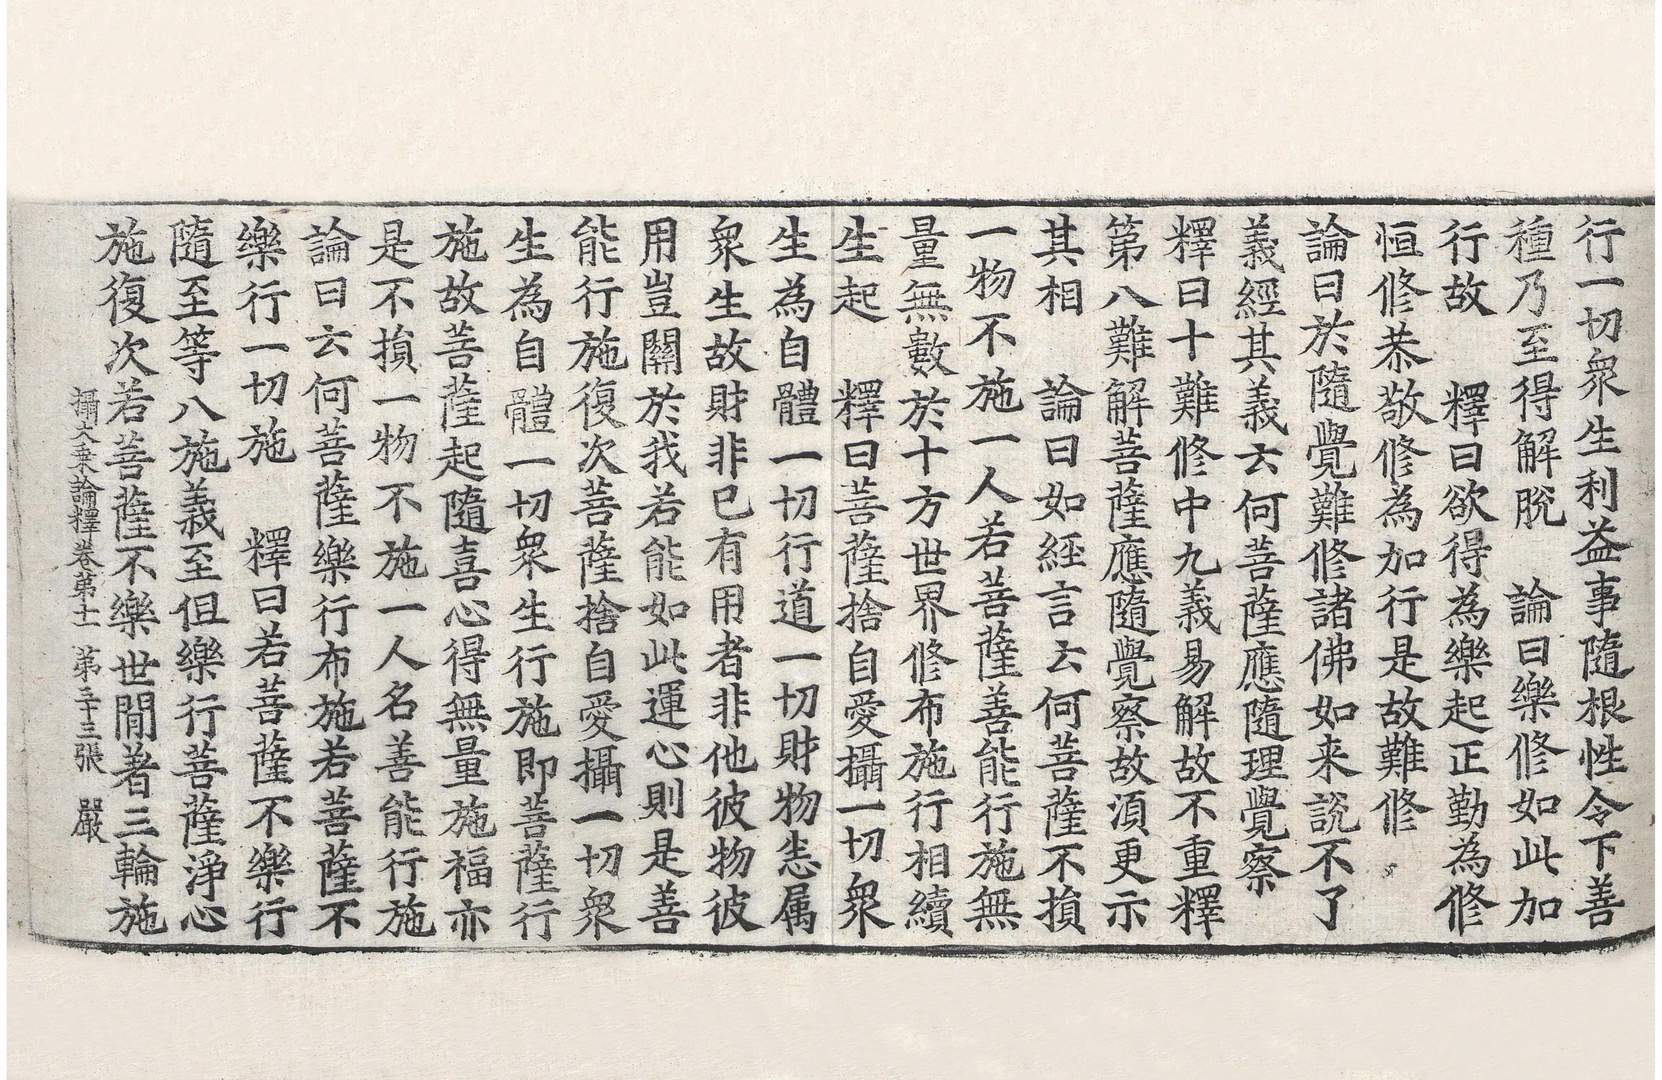 行一切衆生利益事隨根性令下善
種乃至得解脫　論曰樂修如此加
行故　釋曰欲得為樂起正勤為修
恒修恭敬修為加行是故難修
論曰於隨覺難修諸佛如来說不了
義經其義云何菩薩應隨理覺察
釋曰十難修中九義易解故不重釋
第八難解菩薩應隨覺察故湏更示
其相　論曰如經言云何菩薩不損
一物不施一人若菩薩善能行施無
量無數於十方世界修布施行相續
生起　釋曰菩薩捨自愛攝一切衆
生為自體一切行道一切財物悉属
衆生故財非已有用者非他彼物彼
用豈關於我若能如此運心則是善
能行施復次菩薩捨自愛攝一切衆
生為自體一切衆生行施即菩薩行
施故菩薩起隨喜心得無量施福亦
是不損一物不施一人名善能行施
論曰云何菩薩樂行布施若菩薩不
樂行一切施　釋曰若菩薩不樂行
隨至等八施義至但樂行菩薩淨心
施復次若菩薩不樂世間著三輪施
攝大乗論釋卷第十一　第三十三張　嚴